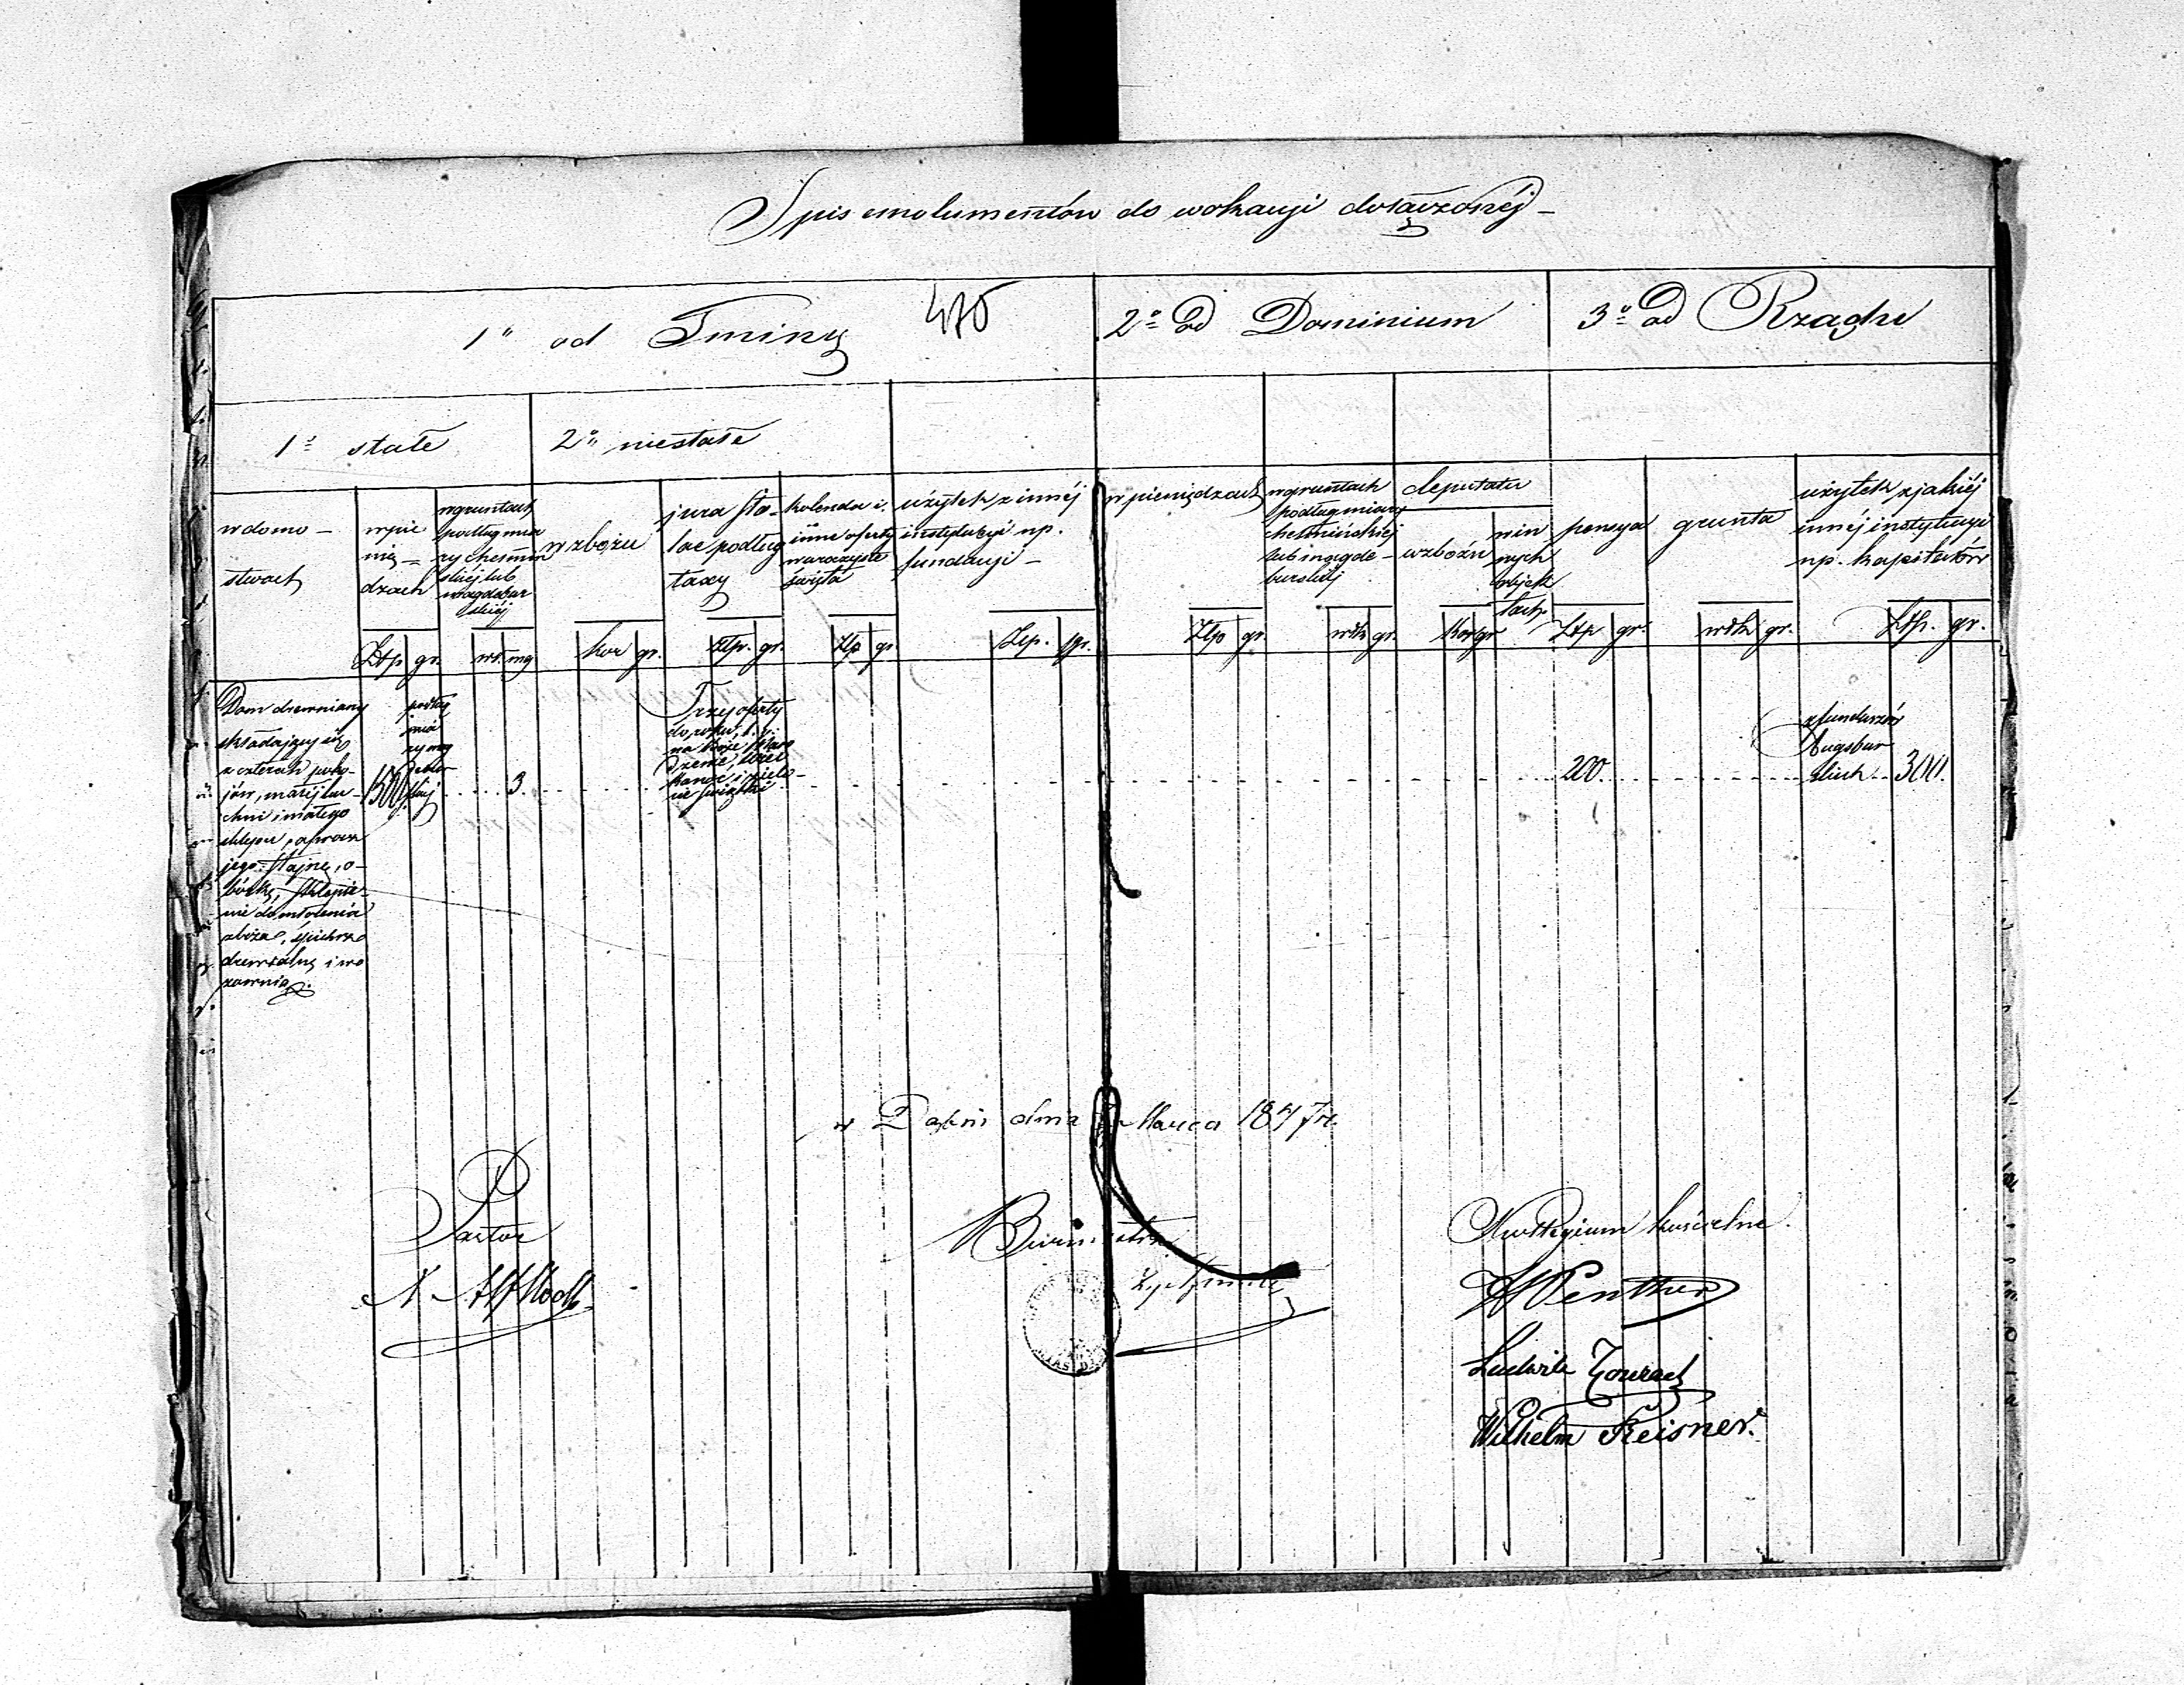 Spis emolumentów do wokacyi dołączonéj -
1° od Gminy
2° od Dominium
3° od Rządu
1° stałe
2° niestałe
w domo-
stwach
w pie
nią-
dzach
w gruntach
podług mia
ry chełmiń
skiéj lub
magdebur
skiéj
w zbożu
jura sto-
lae podług
taxy
kolenda i
inne oferty
w uroczyste
święta
użytek z innéj
instytucyi np.
fundacyi -
w pieniądzach
w gruntach
podług miary
chełmińskiéj
lub magde-
burskiéj
deputatu
w zbożu
w in
nych
objek
tach
pensya
grunta
użytek z jakiéj
innéj instytucyi
np. kapitałów
Złp gr.
wł. mg
kor gr.
Złp. gr.
Złp gr.
Złp. gr.
Złp gr.
włk gr.
Kor gr
Złp gr.
włk gr.
Złp. gr.
Dom drewniany
składający się
z czterech poko-
jów, małéj ku-
chni i małego
sklepu, oprócz
jego: stajnę, o-
bórkę,
nie do młócenia
zboża, spichrz
drewalnę i wo
zownią.
1500
podług
mia
ry mag
debur
skiéj
3.
Trzy oferty
do roku, t. j.
na Boże Naro
dzenie, Wiel
kanoc i Zielo-
ne Świątki
200.
z funduszów
Augsbur
skich 300.
w Dąbiu dnia Marca 1847 r.
Pastor
Burmistrz
Kollegium kościelne.
Ludwik Conrad
Wilhelm Reisner.